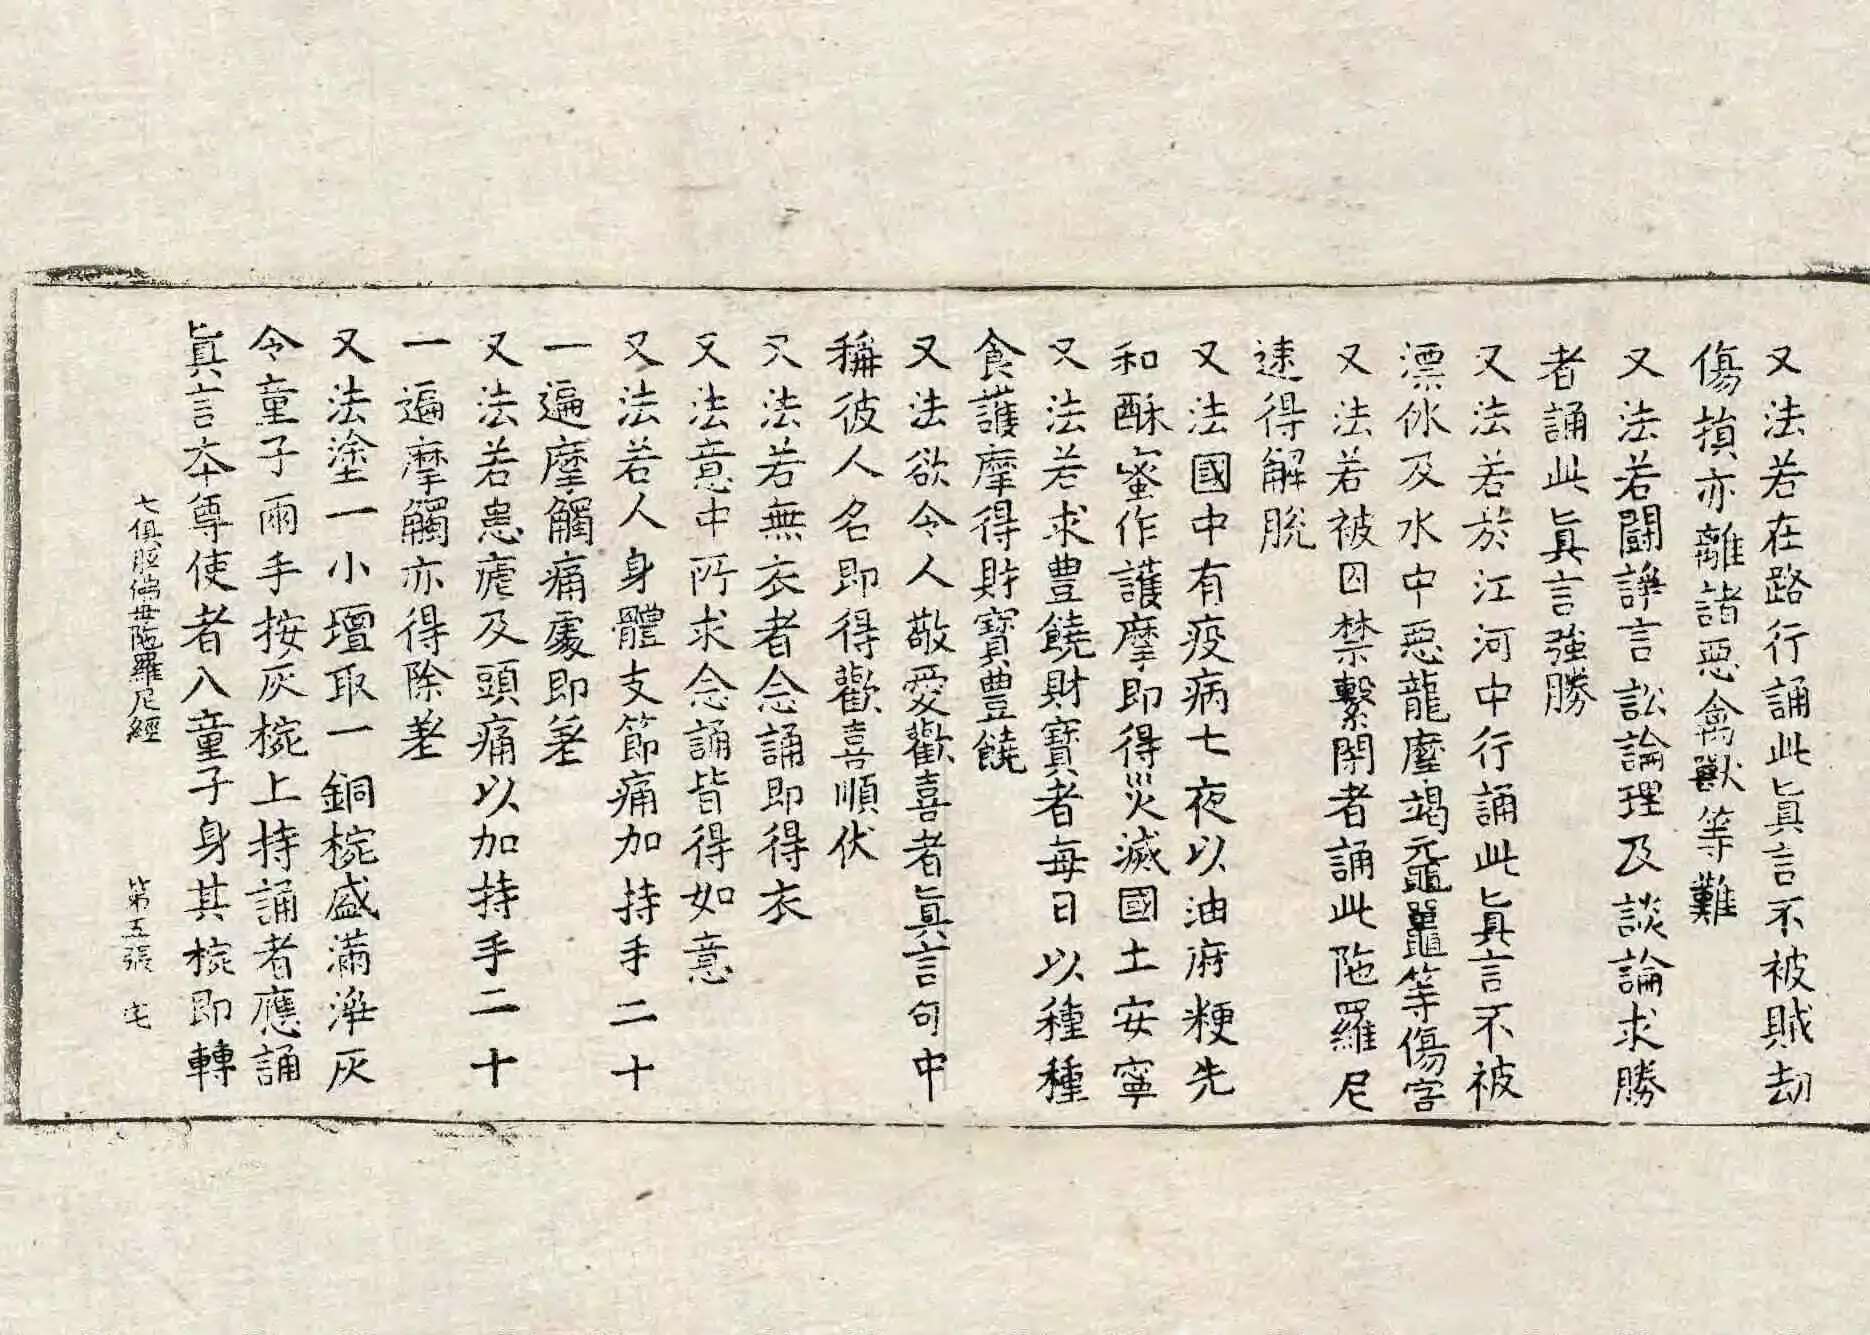 又法若在路行誦此眞言不被賊劫
傷損亦離諸惡禽獸等難
又法若鬪諍言訟論理及談論求勝
者誦此眞言強勝
又法若於江河中行誦此眞言不被
漂㳄及水中惡龍摩竭黿鼉等傷害
又法若被囚禁繫閉者誦此陁羅尼
速得解脫
又法國中有疫病七夜以油麻粳先
和酥蜜作護摩即得災滅國土安寧
又法若求豊饒財寶者每日以種種
食護摩得財寶豊饒
又法欲令人敬愛歡喜者眞言句中
稱彼人名即得歡喜順伏
又法若無衣者念誦即得衣
又法意中所求念誦皆得如意
又法若人身體支節痛加持手二十
一遍摩觸痛處即差
又法若患瘧及頭痛以加持手二十
一遍摩觸亦得除差
又法塗一小壇取一銅椀盛滿淨灰
令童子兩手按灰椀上持誦者應誦
眞言本尊使者入童子身其椀即轉
七俱胝佛母陁羅尼經 第五張 宅